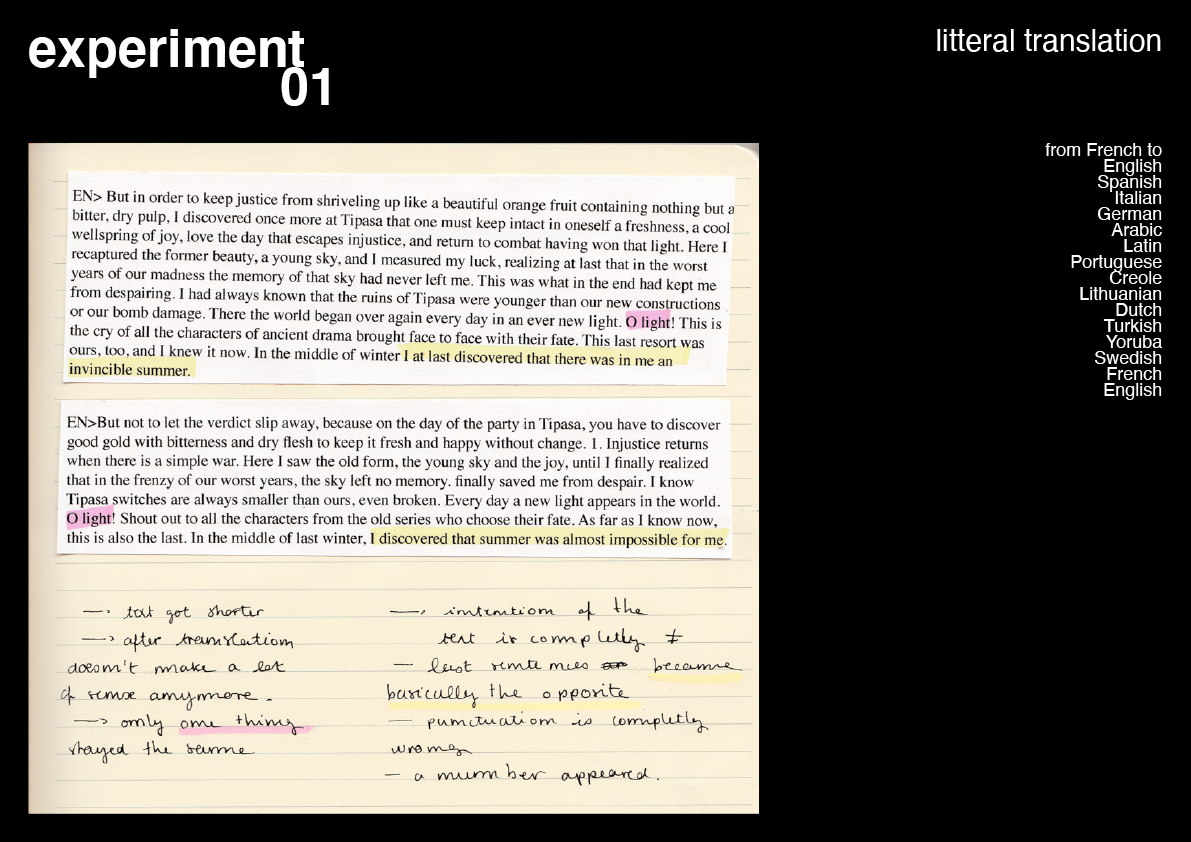 experiment
01
litteral translation
from French to
English
Spanish
Italian
German
Arabic
Latin
Portuguese
Creole
Lithuanian
Dutch
Turkish
Yoruba
Swedish
French
English
EN> But in order to keep justice from shriveling up like a beautiful orange fruit containing nothing but a
bitter, dry pulp, I discovered once more at Tipasa that one must keep intact in oneself a freshness, a cool
wellspring of joy, love the day that escapes injustice, and return to combat having won that light. Here I
recaptured the former beauty, a young sky, and I measured my luck, realizing at last that in the worst
years of our madness the memory of that sky had never left me. This was what in the end had kept me
from despairing. I had always known that the ruins of Tipasa were younger than our new constructions
or our bomb damage. There the world began over again every day in an ever new light. O light! This is
the cry of all the characters of ancient drama brought face to face with their fate. This last resort was
ours, too, and I knew it now. In the middle of winter I at last discovered that there was in me an
invincible summer.
EN>But not to let the verdict slip away, because on the day of the party in Tipasa, you have to discover
good gold with bitterness and dry flesh to keep it fresh and happy without change. 1. Injustice returns
when there is a simple war. Here I saw the old form, the young sky and the joy, until I finally realized
that in the frenzy of our worst years, the sky left no memory. finally saved me from despair. I know
Tipasa switches are always smaller than ours, even broken. Every day a new light appears in the world.
O light! Shout out to all the characters from the old series who choose their fate. As far as I know now,
this is also the last. In the middle of last winter, I discovered that summer was almost impossible for me.
—› text got shorter
—› after translation
doesn't make a lot
of sense anymore.
—› only one thing
stayed the same
—› intention of the
text is completly ≠
— last sentences became
basically the opposite
— punctuation is completly
wrong
— a number appeared.